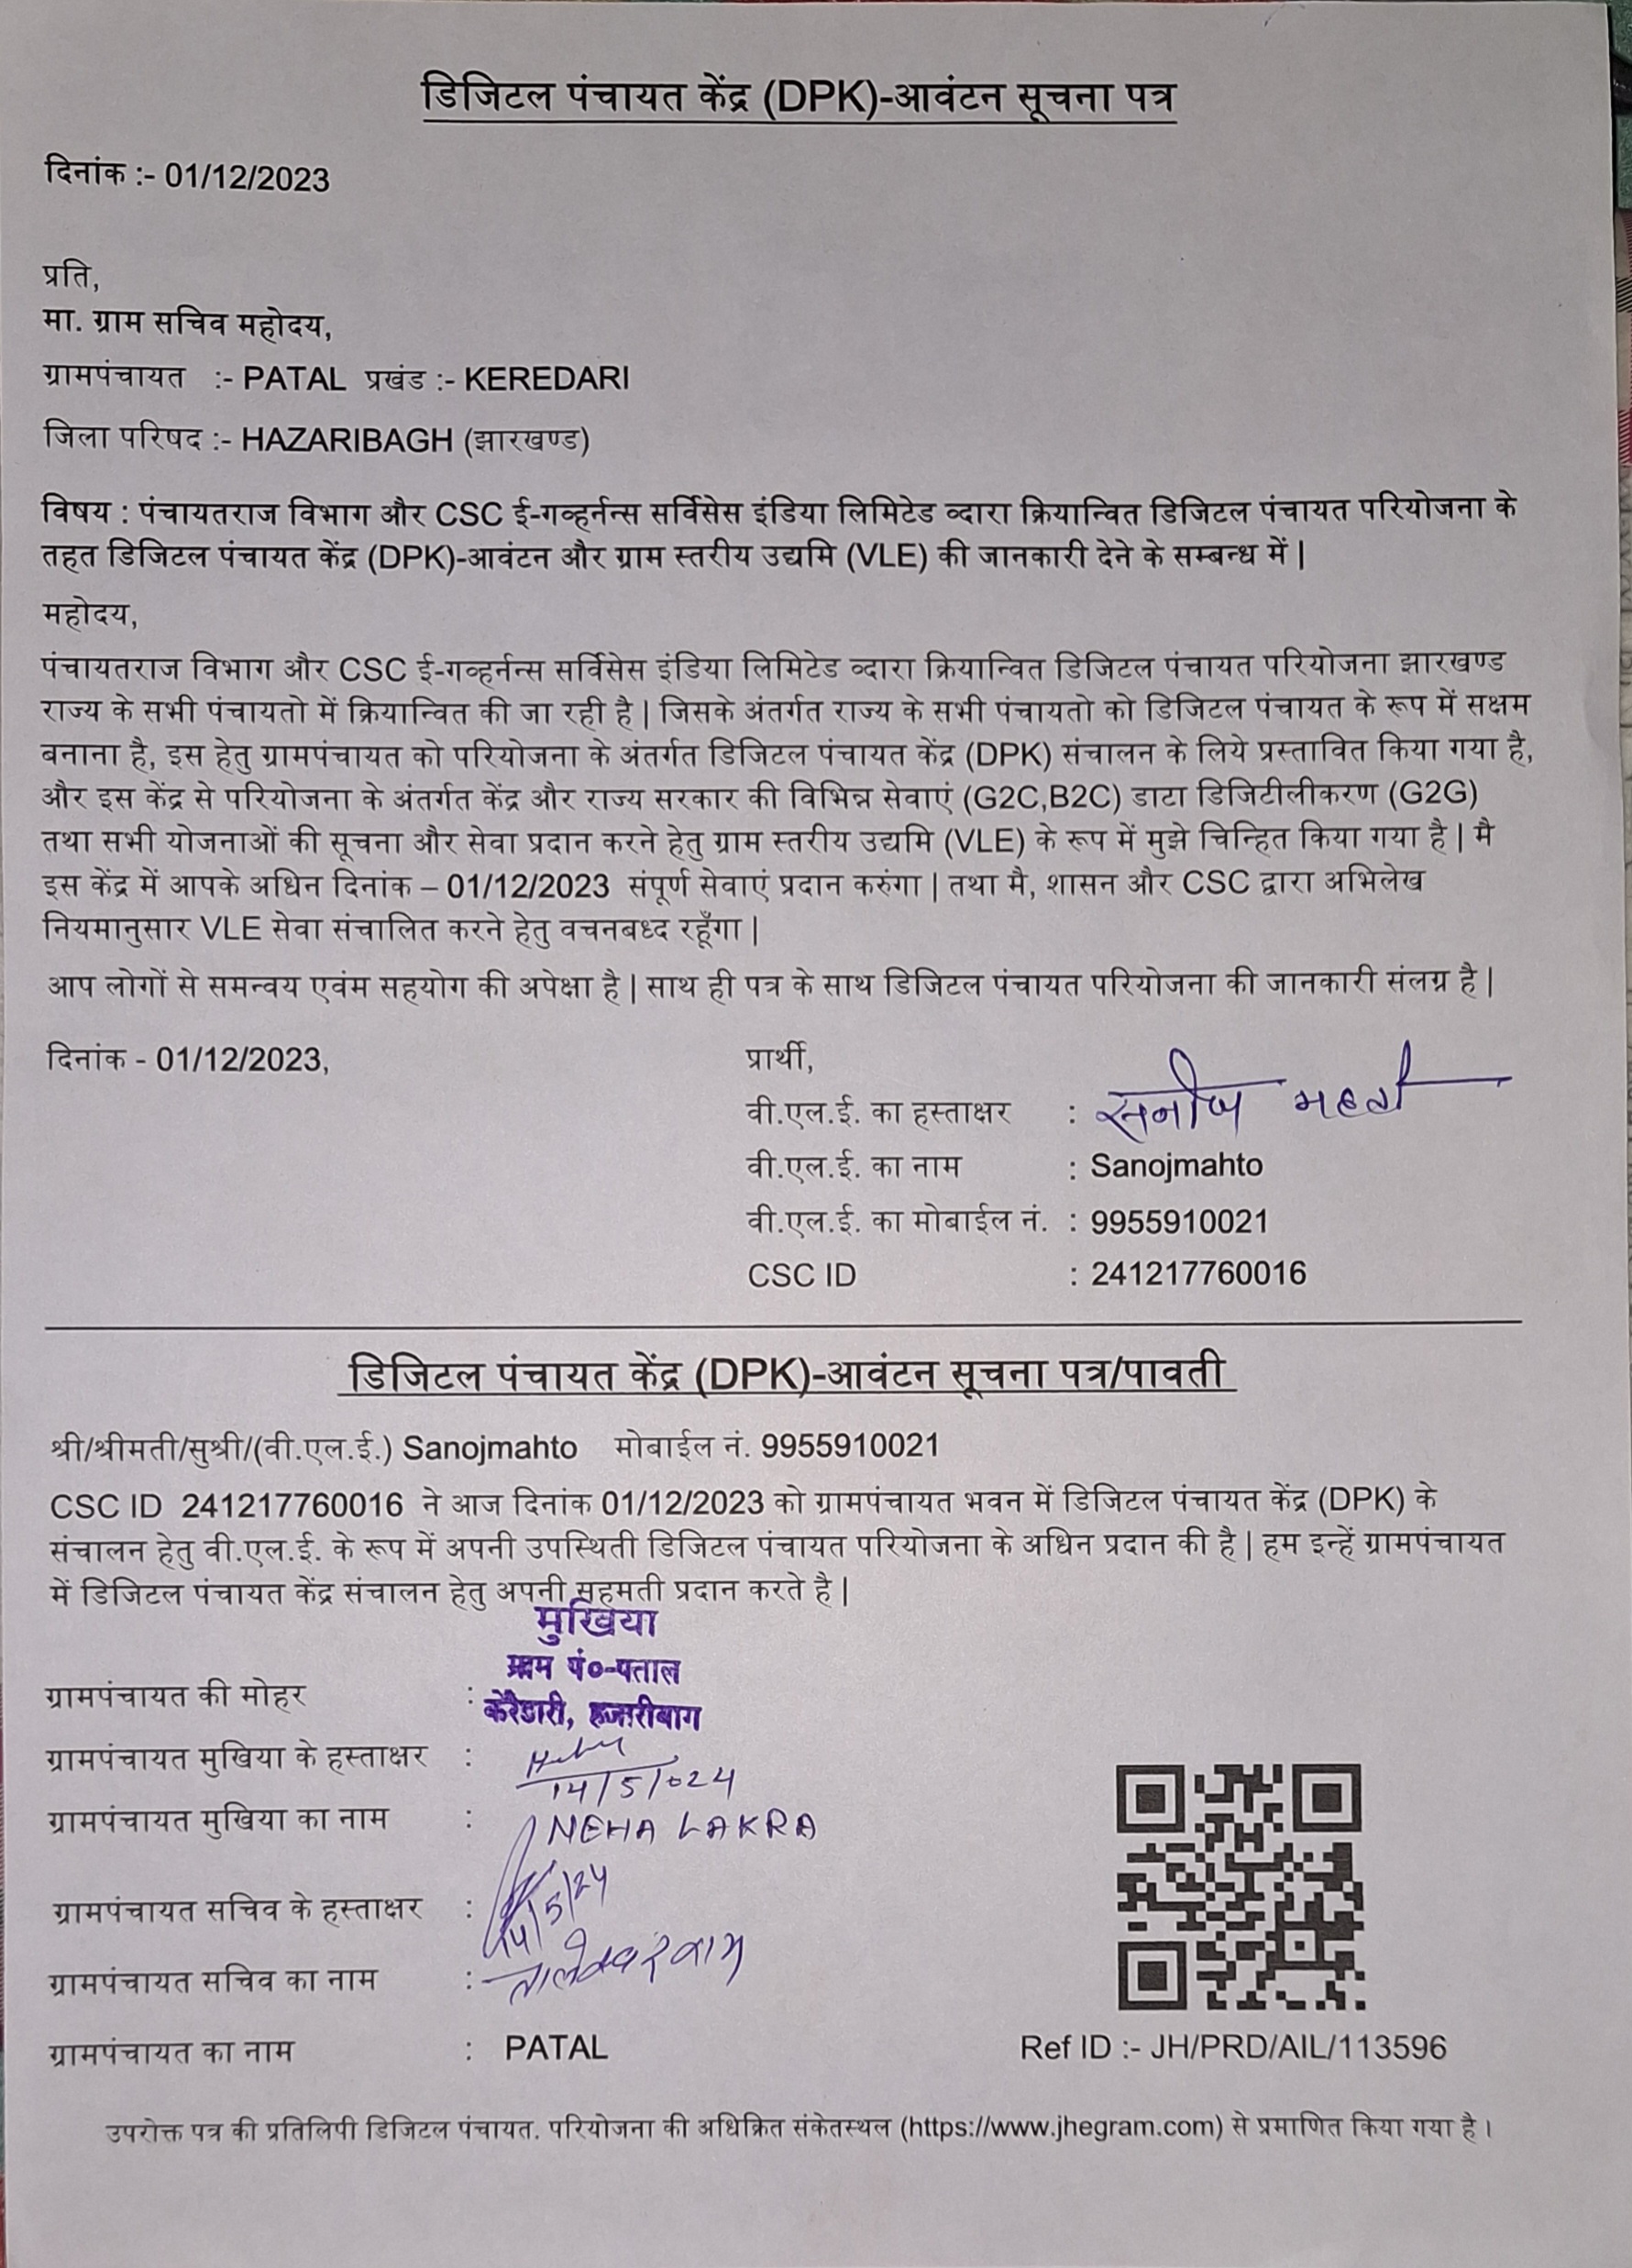 डिजिटल पंचायत केंद्र (DPK)-आवंटन सूचना पत्र
दिनांक :- 01/12/2023
प्रति,
मा. ग्राम सचिव महोदय,
ग्रामपंचायत :- PATAL प्रखंड :- KEREDARI
जिला परिषद :- HAZARIBAGH (झारखण्ड)
विषय : पंचायतराज विभाग और CSC ई-गव्हर्नन्स सर्विसेस इंडिया लिमिटेड व्दारा क्रियान्वित डिजिटल पंचायत परियोजना के
तहत डिजिटल पंचायत केंद्र (DPK)-आवंटन और ग्राम स्तरीय उद्यमि (VLE) की जानकारी देने के सम्बन्ध में |
महोदय,
पंचायतराज विभाग और CSC ई-गव्हर्नन्स सर्विसेस इंडिया लिमिटेड व्दारा क्रियान्वित डिजिटल पंचायत परियोजना झारखण्ड
राज्य के सभी पंचायतो में क्रियान्वित की जा रही है | जिसके अंतर्गत राज्य के सभी पंचायतो को डिजिटल पंचायत के रूप में सक्षम
बनाना है, इस हेतु ग्रामपंचायत को परियोजना के अंतर्गत डिजिटल पंचायत केंद्र (DPK) संचालन के लिये प्रस्तावित किया गया है,
और इस केंद्र से परियोजना के अंतर्गत केंद्र और राज्य सरकार की विभिन्न सेवाएं (G2C,B2C) डाटा डिजिटीलीकरण (G2G)
तथा सभी योजनाओं की सूचना और सेवा प्रदान करने हेतु ग्राम स्तरीय उद्यमि (VLE) के रूप में मुझे चिन्हित किया गया है | मै
इस केंद्र में आपके अधिन दिनांक – 01/12/2023 संपूर्ण सेवाएं प्रदान करुंगा | तथा मै, शासन और CSC द्वारा अभिलेख
नियमानुसार VLE सेवा संचालित करने हेतु वचनबध्द रहूँगा |
आप लोगों से समन्वय एवंम सहयोग की अपेक्षा है | साथ ही पत्र के साथ डिजिटल पंचायत परियोजना की जानकारी संलग्न है |
दिनांक - 01/12/2023, प्रार्थी,
वी.एल.ई. का हस्ताक्षर : सनोज महतो
वी.एल.ई. का नाम : Sanojmahto
वी.एल.ई. का मोबाईल नं. : 9955910021
CSC ID : 241217760016
डिजिटल पंचायत केंद्र (DPK)-आवंटन सूचना पत्र/पावती
श्री/श्रीमती/सुश्री/(वी.एल.ई.) Sanojmahto मोबाईल नं. 9955910021
CSC ID 241217760016 ने आज दिनांक 01/12/2023 को ग्रामपंचायत भवन में डिजिटल पंचायत केंद्र (DPK) के
संचालन हेतु वी.एल.ई. के रूप में अपनी उपस्थिती डिजिटल पंचायत परियोजना के अधिन प्रदान की है | हम इन्हें ग्रामपंचायत
में डिजिटल पंचायत केंद्र संचालन हेतु अपनी सहमती प्रदान करते है |
मुखिया
ग्राम पं०-पताल
ग्रामपंचायत की मोहर : केरेडारी, हजारीबाग
ग्रामपंचायत मुखिया के हस्ताक्षर :
14/5/024
ग्रामपंचायत मुखिया का नाम : NEHA LAKRA
ग्रामपंचायत सचिव के हस्ताक्षर : 14/5/24
ग्रामपंचायत सचिव का नाम :
ग्रामपंचायत का नाम : PATAL
Ref ID :- JH/PRD/AIL/113596
उपरोक्त पत्र की प्रतिलिपी डिजिटल पंचायत. परियोजना की अधिक्रित संकेतस्थल (https://www.jhegram.com) से प्रमाणित किया गया है ।